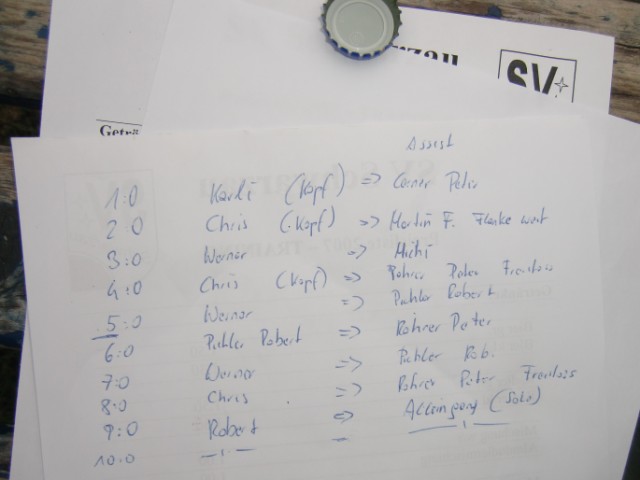 SV
Assist
1:0 Karli (Kopf) => Corner Peter
2:0 Chris (Kopf) => Martin F. Flanke weit
3:0 Werner => Michi
4:0 Chris (Kopf) => Rohrer Peter Freistoss
5:0 Werner => Pichler Robert
6:0 Pichler Robert => Rohrer Peter
7:0 Werner => Pichler Rob.
8:0 Chris . => Rohrer Peter Freistoss
9:0 Robert => Alleingang (Solo)
10:0 -"- - -"-